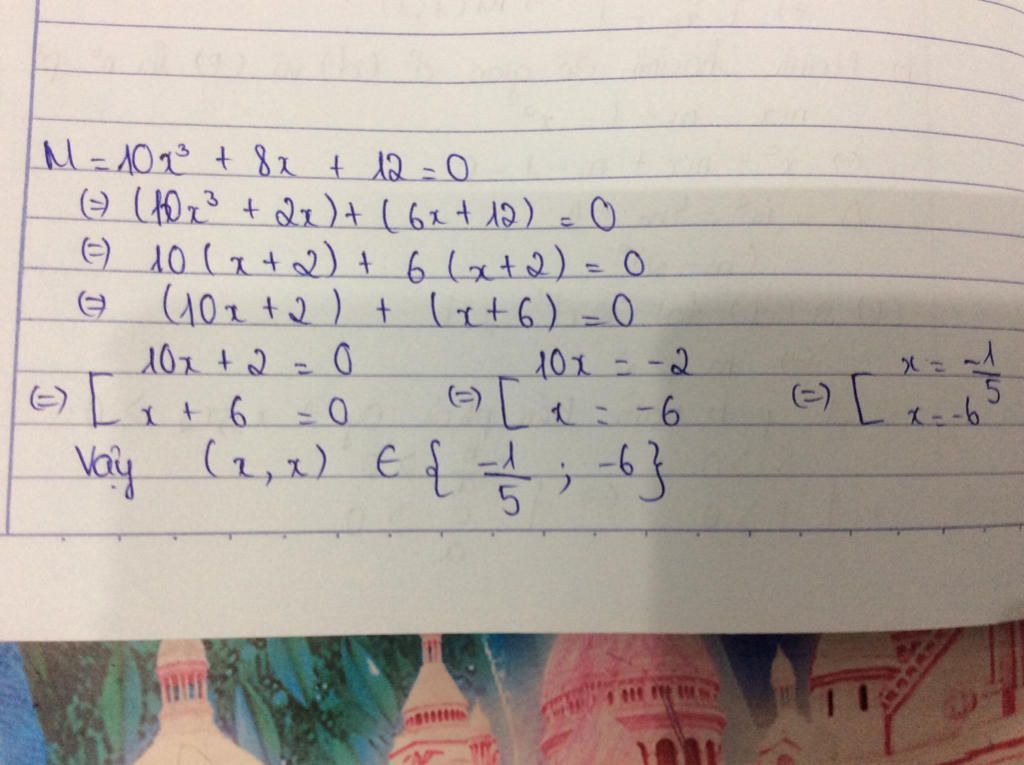 M = 10x³ + 8x + 12 = 0
(=) (10x³ + 2x) + (6x + 12) = 0
(=) 10(x + 2) + 6(x + 2) = 0
(=) (10x + 2) + (x + 6) = 0
(=) [ 10x + 2 = 0 (=) [ 10x = -2 (=) [ x = -1/5
x + 6 = 0 x = -6 x = -6
Vậy (x, x) ∈ { -1/5 ; -6 }